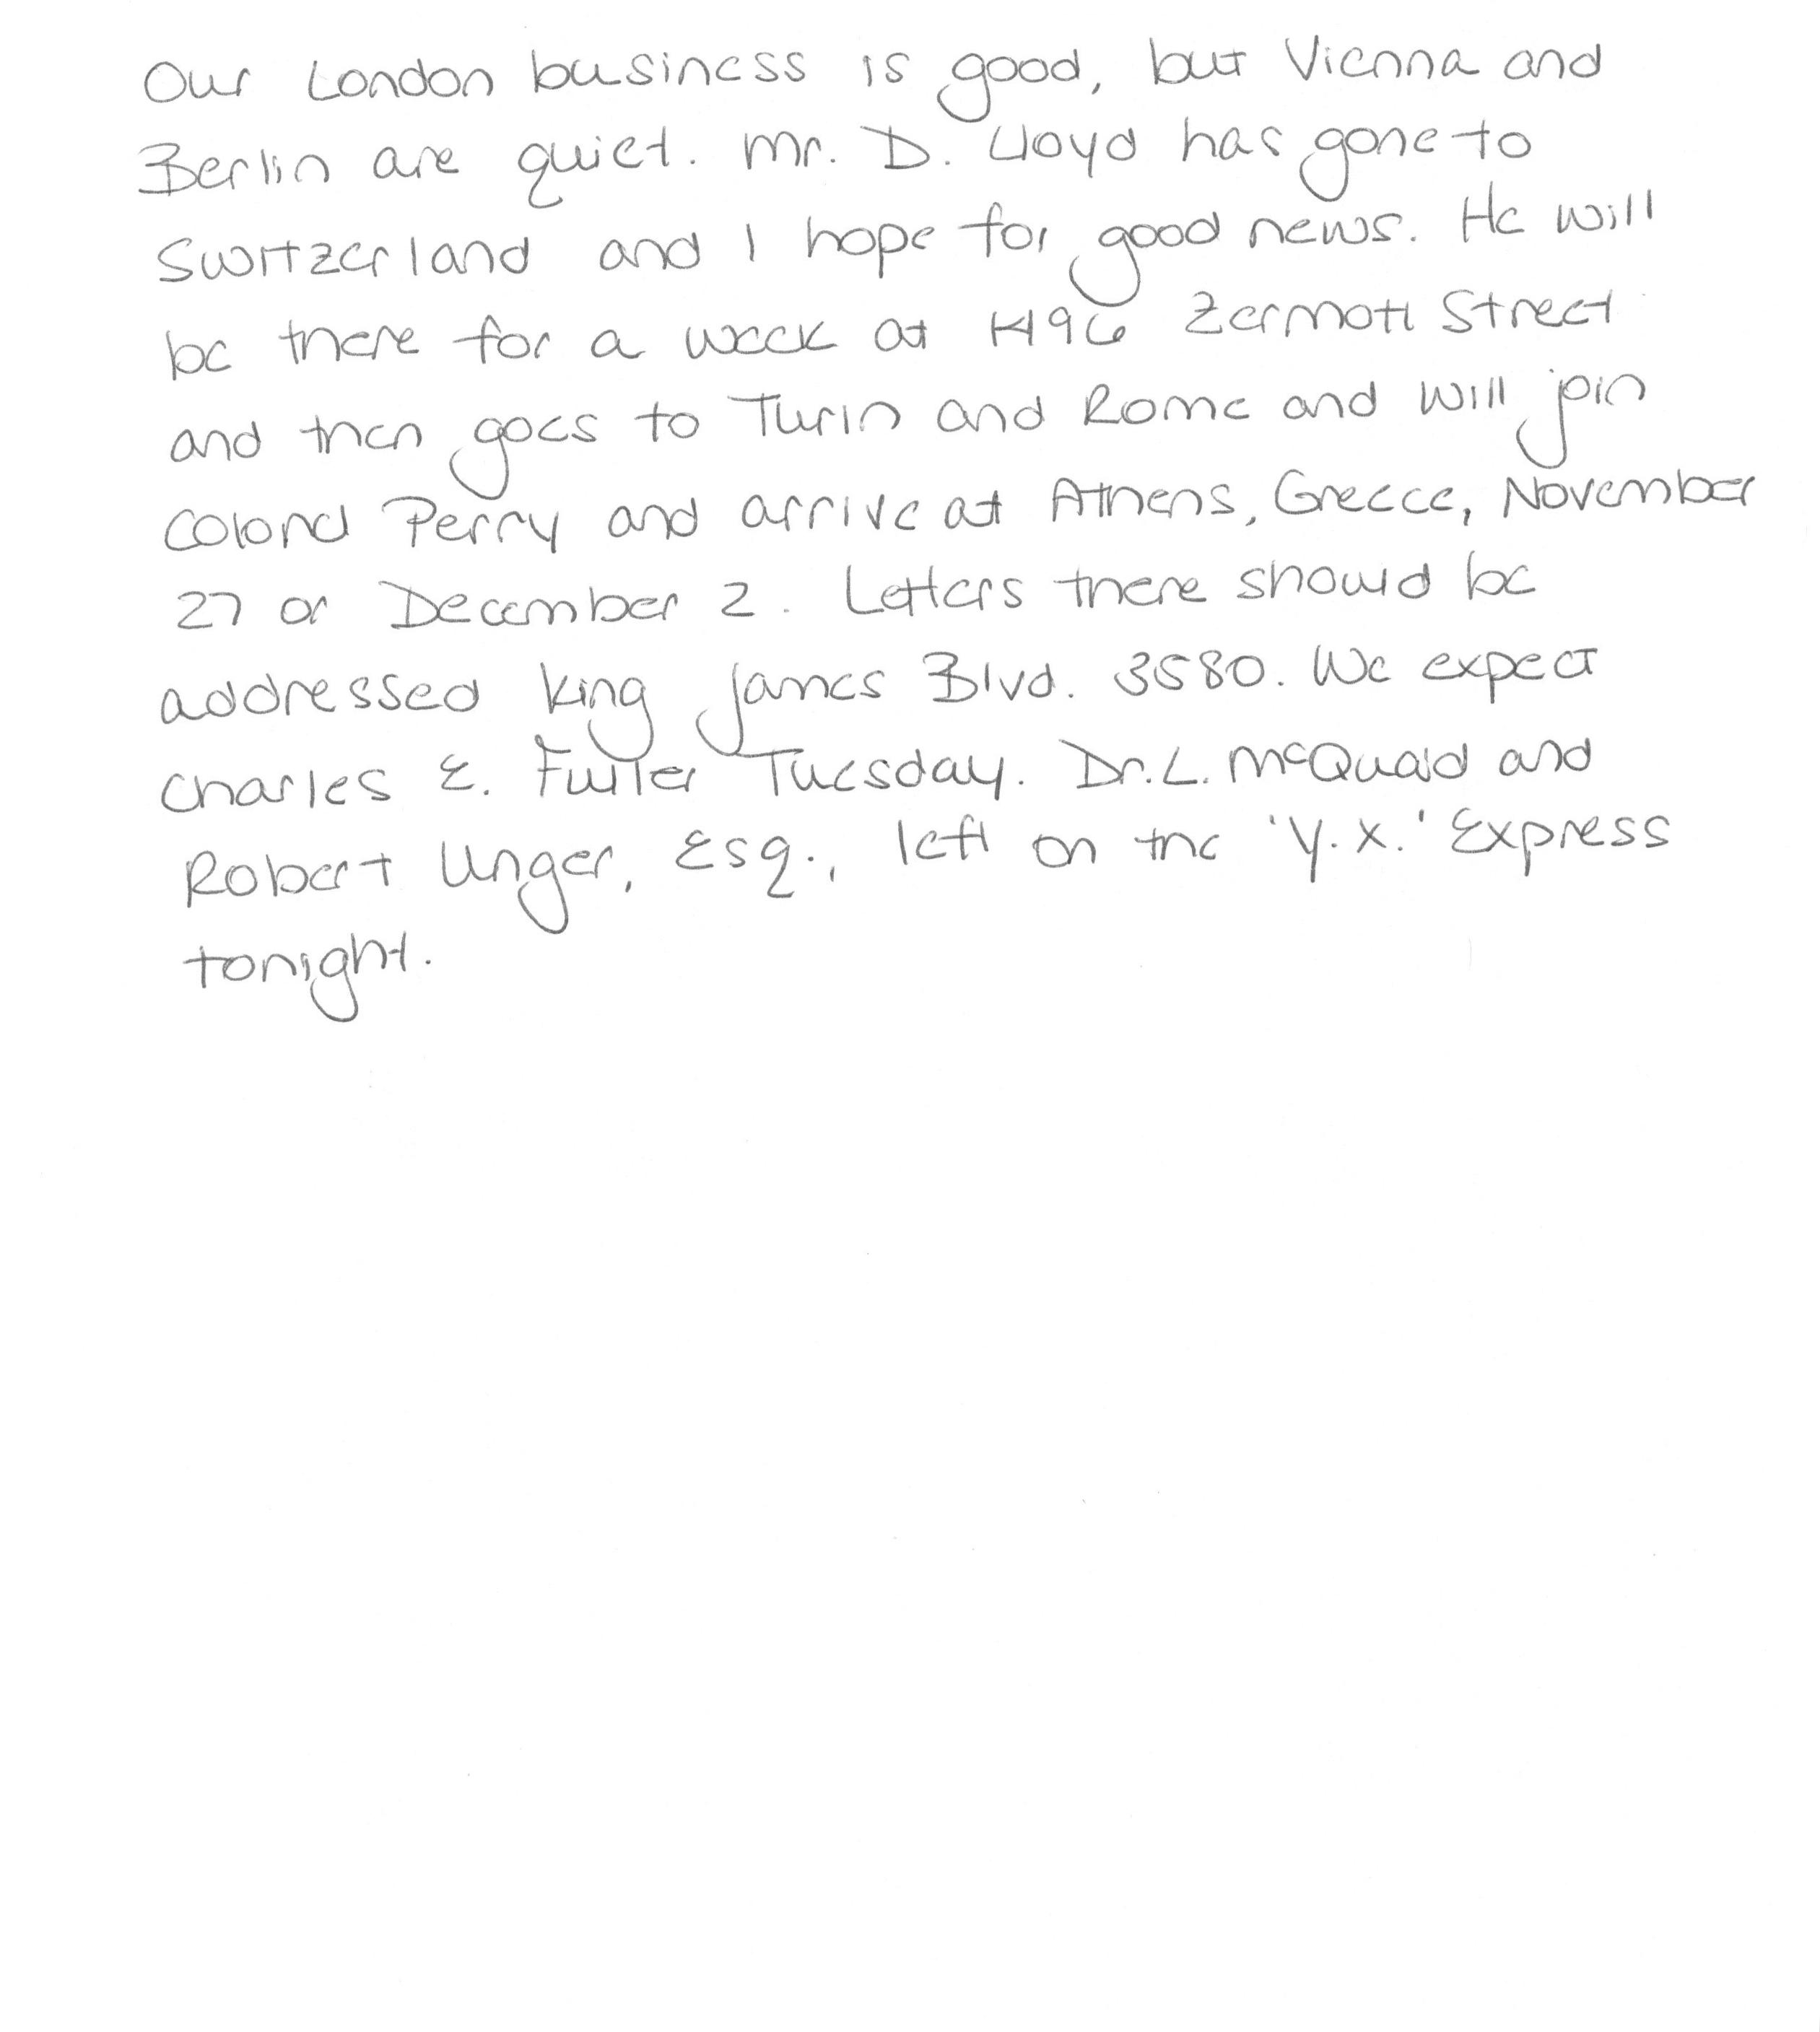 Our London business is good, but Vienna and
Berlin are quiet. Mr. D. Lloyd has gone to
Switzerland and I hope for good news. He will
be there for a week at 1496 Zermott Street
and then goes to Turin and Rome and will join
Colonel Perry and arrive at Athens, Greece, November
27 or December 2. Letters there should be
addressed King James Blvd. 3580. We expect
Charles E. Fuller Tuesday. Dr. L. McQuaid and
Robert Unger, Esq., left on the 'Y.X.' Express
tonight.